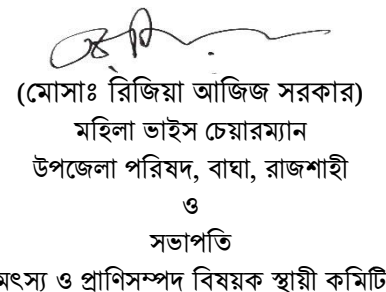 (মোসাঃ রিজিয়া আজিজ সরকার)
মহিলা ভাইস চেয়ারম্যান
উপজেলা পরিষদ, বাঘা, রাজশাহী
ও
সভাপতি
মৎস্য ও প্রাণিসম্পদ বিষয়ক স্থায়ী কমিটি